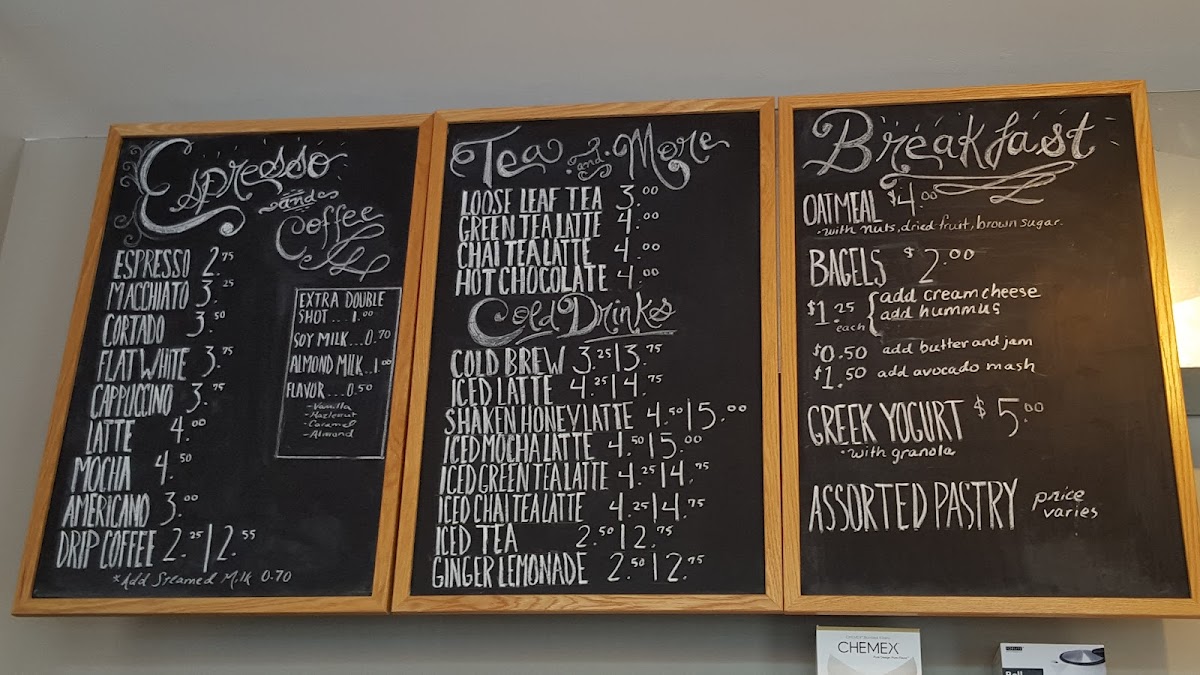 Espresso
and
Coffee
ESPRESSO 2.75
MACCHIATO 3.25
CORTADO 3.50
FLAT WHITE 3.75
CAPPUCCINO 3.75
LATTE 4.00
MOCHA 4.50
AMERICANO 3.00
DRIP COFFEE 2.25|2.55
*Add Sreamed Milk 0.70
EXTRA DOUBLE
SHOT...1.00
SOY MILK...0.70
ALMOND MILK..1.00
FLAVOR...0.50
-Vanilla
-Hazlenut
-Caramel
-Almond
Tea and More
LOOSE LEAF TEA 3.00
GREEN TEA LATTE 4.00
CHAI TEA LATTE 4.00
HOT CHOCOLATE 4.00
Cold Drinks
COLD BREW 3.25|3.75
ICED LATTE 4.25|4.75
SHAKEN HONEY LATTE 4.50|5.00
ICED MOCHA LATTE 4.50|5.00
ICED GREEN TEA LATTE 4.25|4.75
ICED CHAI TEA LATTE 4.25|4.75
ICED TEA 2.50|2.75
GINGER LEMONADE 2.50|2.75
Breakfast
OATMEAL $4.00
•with nuts, dried fruit, brown sugar.
BAGELS $2.00
$1.25 each { add cream cheese
add hummus
$0.50 add butter and jam
$1.50 add avocado mash
GREEK YOGURT $5.00
•with granola
ASSORTED PASTRY price
varies
CHEMEX